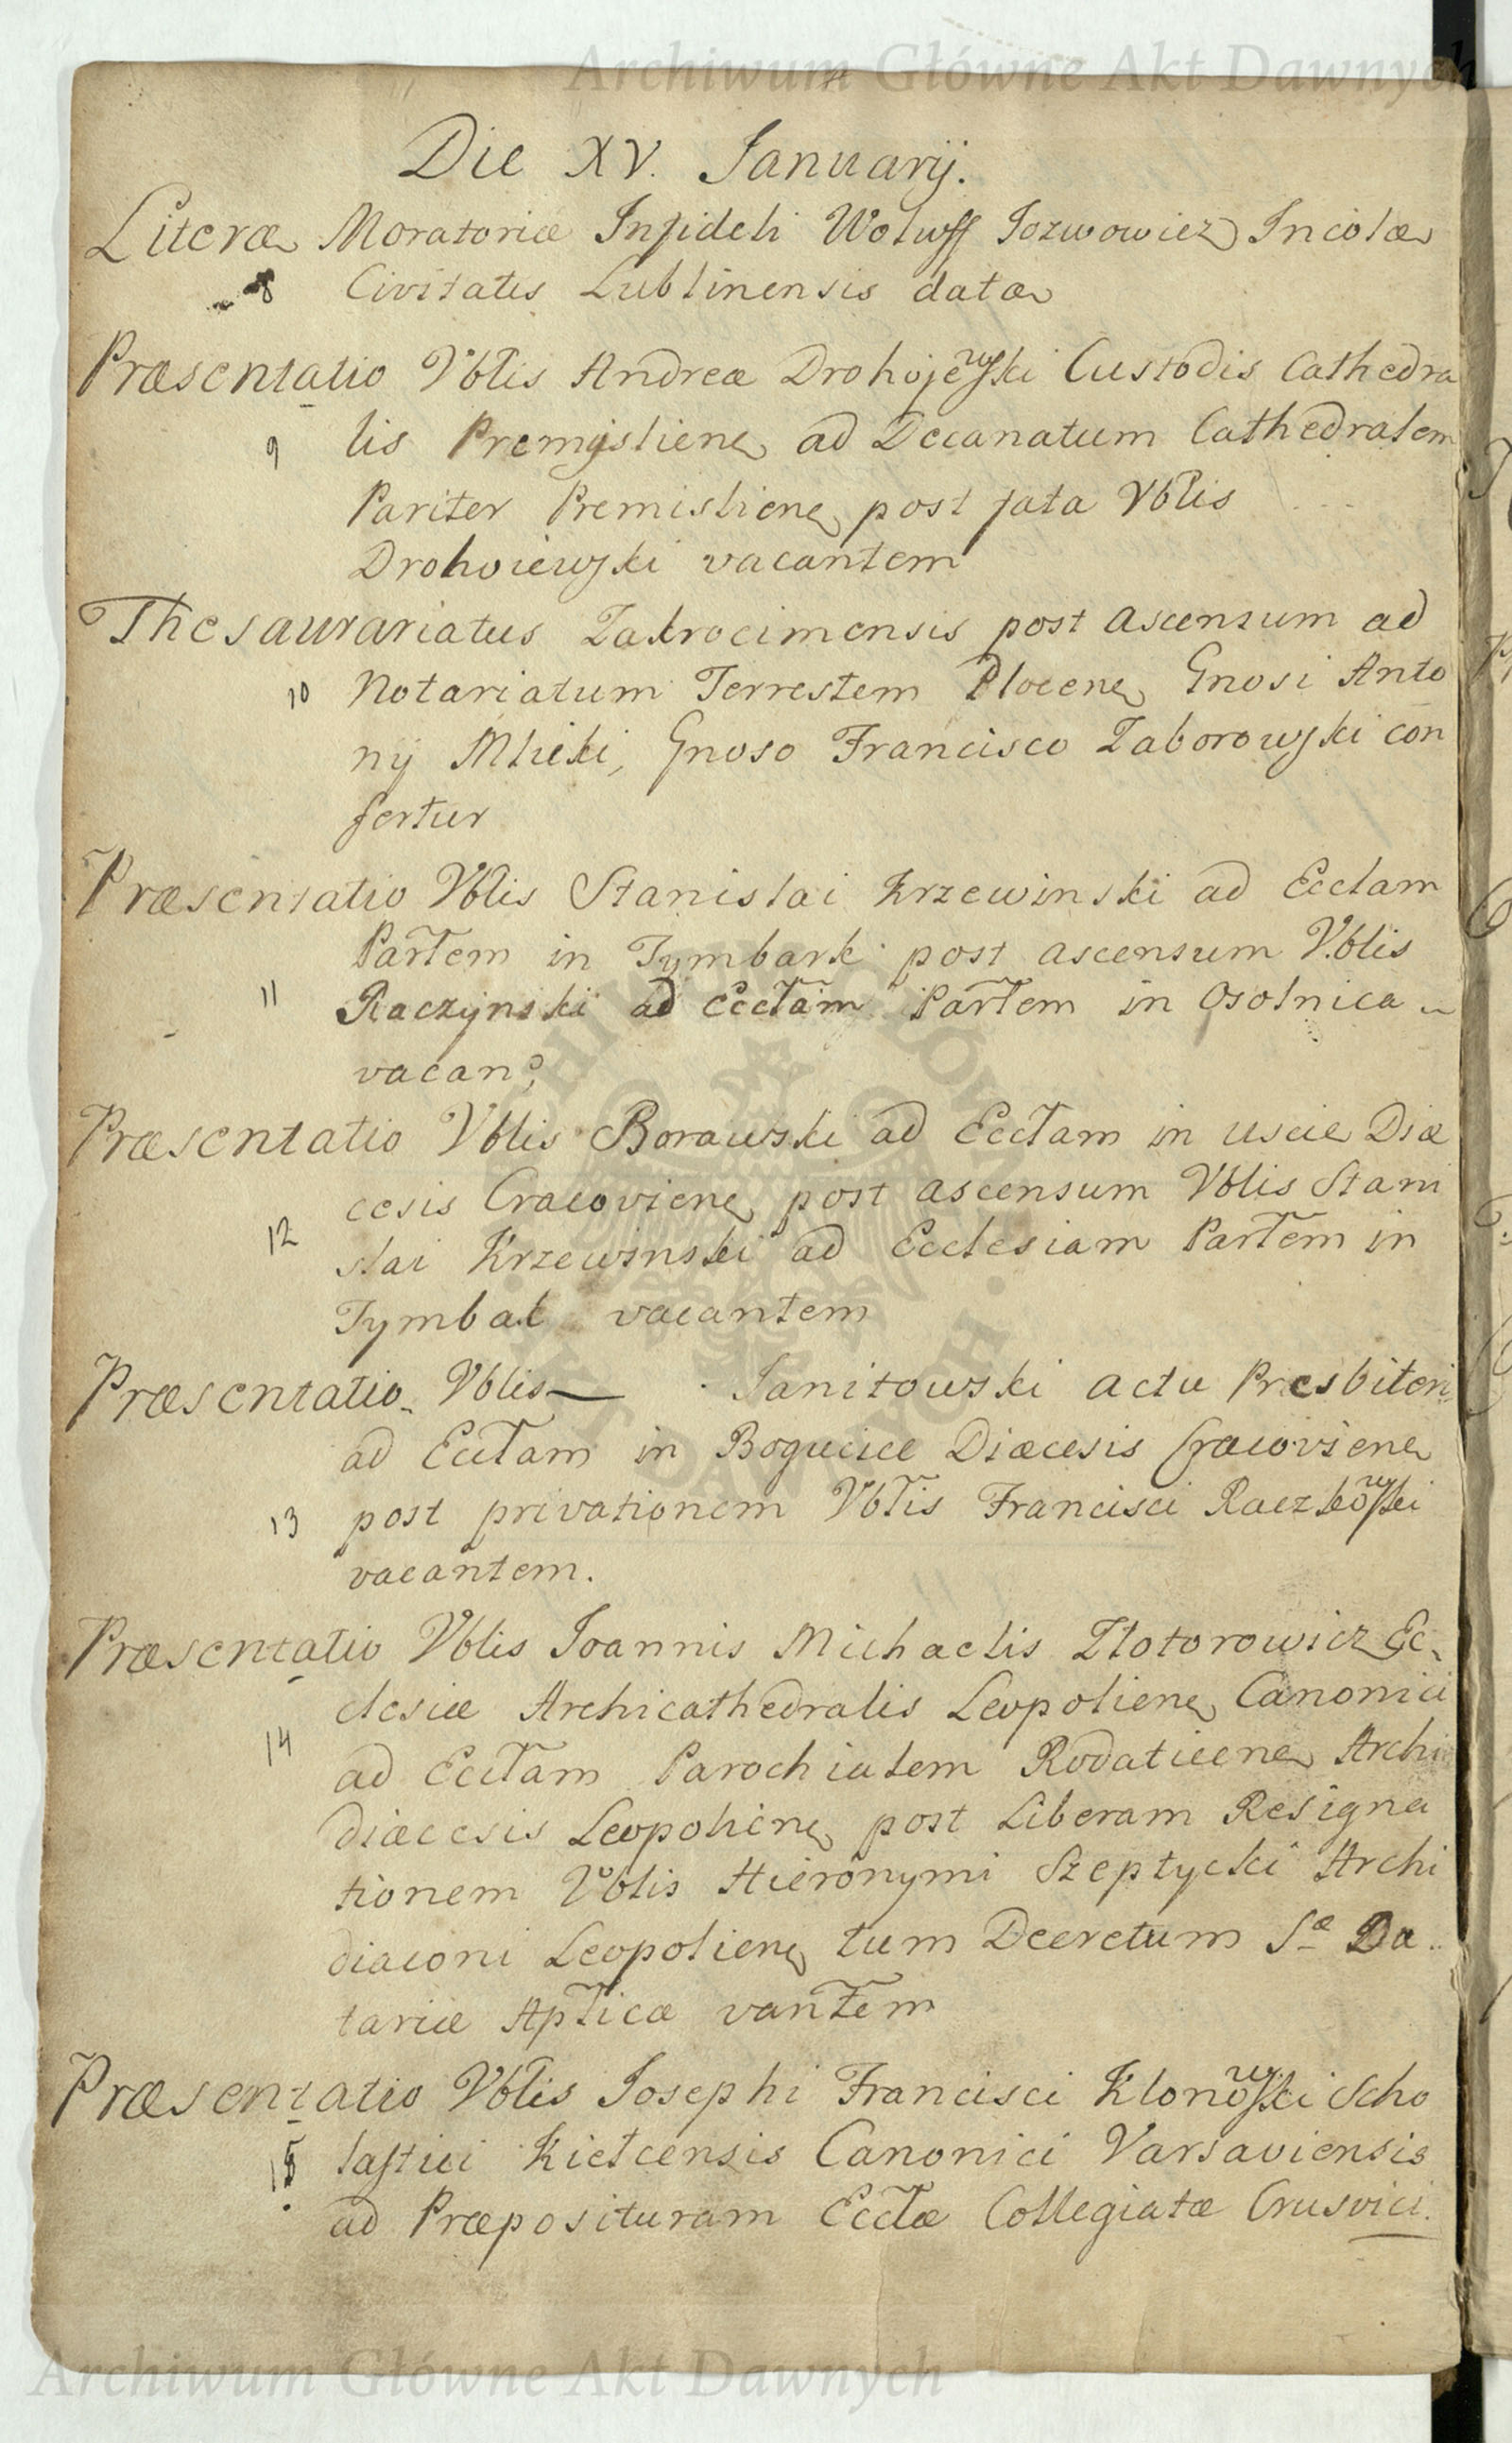 Archiwum Główne Akt Dawnych
Die XV. Januarij.
Literæ Moratoriæ Infideli Wolwff Jozwowicz Incolæ
8 Civitatis Lublinensis datæ
Præsentatio Vblis Andreæ Drohojewski Custodis Cathedra
9 lis Premysliene ad Decanatum Cathedralem
Pariter Premisliene post fata Vblis
Drohoiewski vacantem
Thesaurariatus Zakrocimensis post ascensum ad
10 Notariatum Terrestem Plocene Gnosi Anto
nij Mlicki, Gnoso Francisco Zaborowski con
fertur
Præsentatio Vblis Stanislai Krzewinski ad Ecclam
Partem in Tymbark post ascensum Vblis
11 Raczynski ad Ecclam Partem in Osolnica
vacan
Præsentatio Vblis Borawski ad Ecclam in uscie Diæ
cesis Cracoviene post ascensum Vblis Stani
12 slai Krzewinski ad Ecclesiam Partem in
Tymbak vacantem
Præsentatio Vblis — Janitowski actu Presbiteri
ad Ecclam in Bogucice Diæcesis Cracoviene
13 post privationem Vblis Francisci Raczkowski
vacantem.
Præsentatio Vblis Joannis Michaelis Zlotorowicz Ec
clesiæ Archicathedralis Leopoliene Canonici
14 ad Ecclam Parochialem Rodaticene Archi
diæcesis Leopoliene post Liberam Resigna
tionem Vblis Hieronymi Szeptycki Archi
diaconi Leopoliene tum Decretum Sæ Da
tariæ Aplicæ vantem
Præsentatio Vblis Josephi Francisci Klonowski Scho
15 lastici Kielcensis Canonici Varsaviensis
ad Præposituram Ecclæ Collegiatæ Crusvici.
Archiwum Główne Akt Dawnych